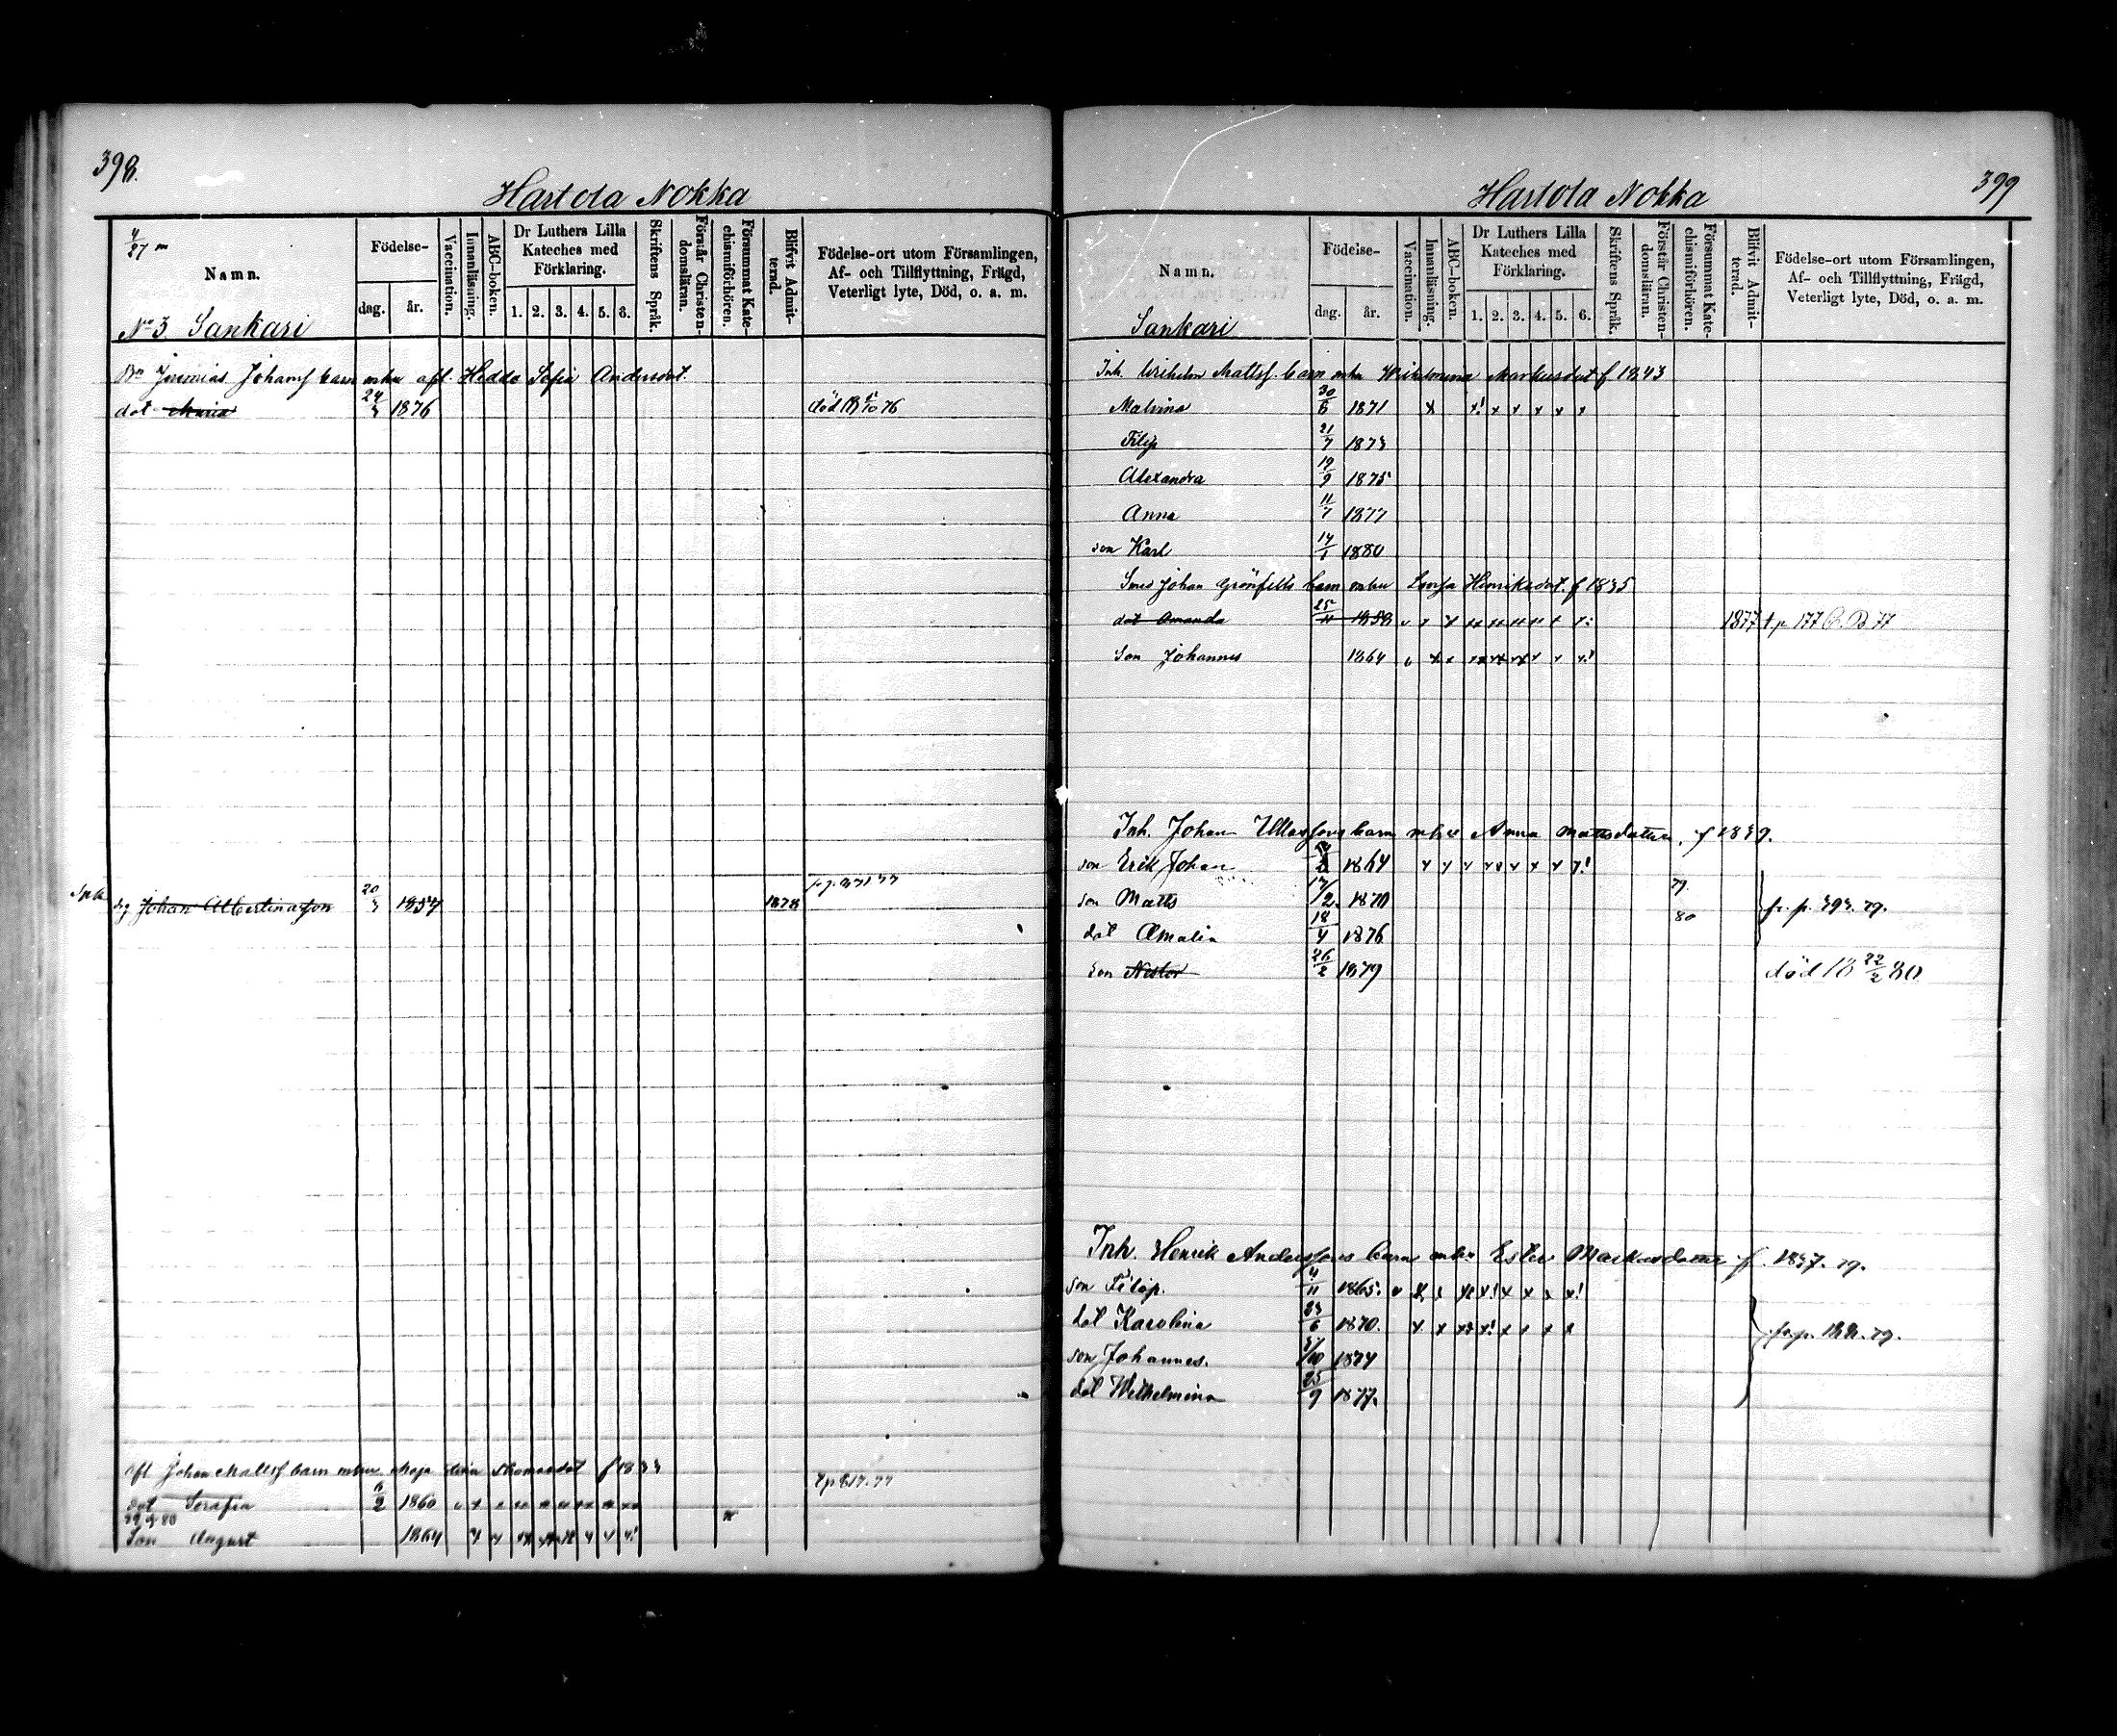 398.
Hartola Nokka
4/27 m
Namn.
Födelse-
dag. år.
Vaccination.
Innanläsning.
ABC-boken.
Dr Luthers Lilla
Kateches med
Förklaring.
1. 2. 3. 4. 5. 6.
Skriftens Språk.
Förstår Christen-
domsläran.
Försummat Kate-
chismiförhören.
Blifvit Admit-
terad.
Födelse-ort utom Församlingen,
Af- och Tillflyttning, Frägd,
Veterligt lyte, Död, o. a. m.
No 3 Sankari
Bn Jeremias Johansf barn m hu afl. Hedda Sofia Andersdot.
dot Maria 1876 död 76
drg Johan Albertinasson 20/3 1857 1878
afl Johan Mattsf barn mhu Maja Thomasdot f 1833
dot Serafia 6/2 1860
Son August 1864
399
Hartola Nokka
Namn.
Födelse-
dag. år.
Vaccination.
Innanläsning.
ABC-boken.
Dr Luthers Lilla
Kateches med
Förklaring.
1. 2. 3. 4. 5. 6.
Skriftens Språk.
Förstår Christen-
domsläran.
Försummat Kate-
chismiförhören.
Blifvit Admit-
terad.
Födelse-ort utom Församlingen,
Af- och Tillflyttning, Frägd,
Veterligt lyte, Död, o. a. m.
Sankari
Inh. Wilhelm Mattsf. barn mhu Wilhelmina Markusdot f 1843
Malvina 30/6 1871
Filip 21/7 1873
Alexandra 19/9 1875
Anna 11/7 1877
son Karl 1880
Smed Johan Grönfelts barn mhu Lovisa Henriksdot. f 1835
dot Amanda 25/11 1858 1877 t p 177 77
Son Johannes 1864
Inh. Johan barn mhu Anna Mattsdotter, f 1839.
son Erik Johan 1864
son Matts 17/2. 1870 79. fr. p. 393. 79.
dot Amalia 18/4 1876 80
son Nestor 26/2 1879 död 18 22/2 80
Inh. Henrik Anderssons barn mhu Ester Markusdotter f. 1837. 79.
son Filip. 4/11 1865.
dot Karolina 23/6 1870. fr. p. 79.
son Johannes. 1874
dot Wilhelmina 25/9 1877.